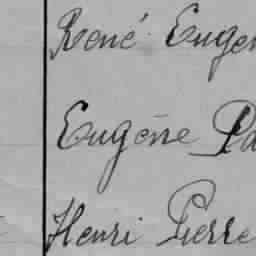 René Eugen
Eugène Pa
Henri Pierre